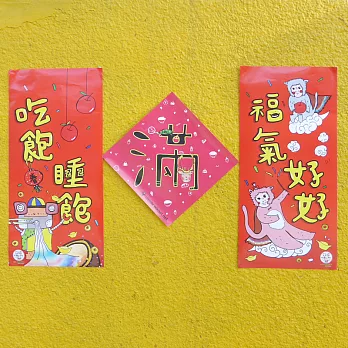 吃飽睡飽
滿
福氣好好